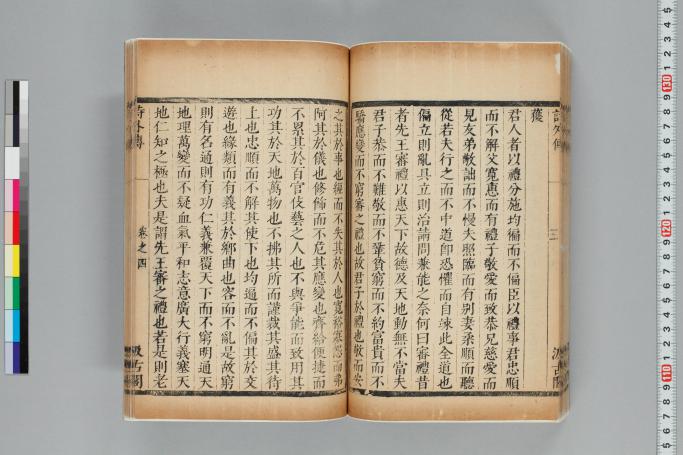 詩外傳
三
汲古閣
獲
君人者以禮分施均徧而不偏臣以禮事君忠順
而不解父寬惠而有禮子敬愛而致恭兄慈愛而
見友弟敬詘而不慢夫照臨而有别妻柔順而聽
從若夫行之而不中道即恐懼而自竦此全道也
偏立則亂具立則治請問兼能之奈何曰審禮昔
者先王審禮以惠天下故德及天地動無不當夫
君子恭而不難敬而不鞏貧窮而不約富貴而不
驕應變而不窮審之禮也故君子於禮也敬而安
之其於事也經而不失其於人也寬裕寡怨而弗
阿其於儀也修飾而不危其應變也齊給便捷而
不累其於百官伎藝之人也不與爭能而致用其
功其於天地萬物也不拂其所而謹裁其盛其待
上也忠順而不解其使下也均遍而不偏其於交
遊也緣類而有義其於鄉曲也容而不亂是故窮
則有名通則有功仁義兼覆天下而不窮明通天
地理萬變而不疑血氣平和志意廣大行義塞天
地仁知之極也夫是謂先王審之禮也若是則老
詩外傳
卷之四
汲古閣